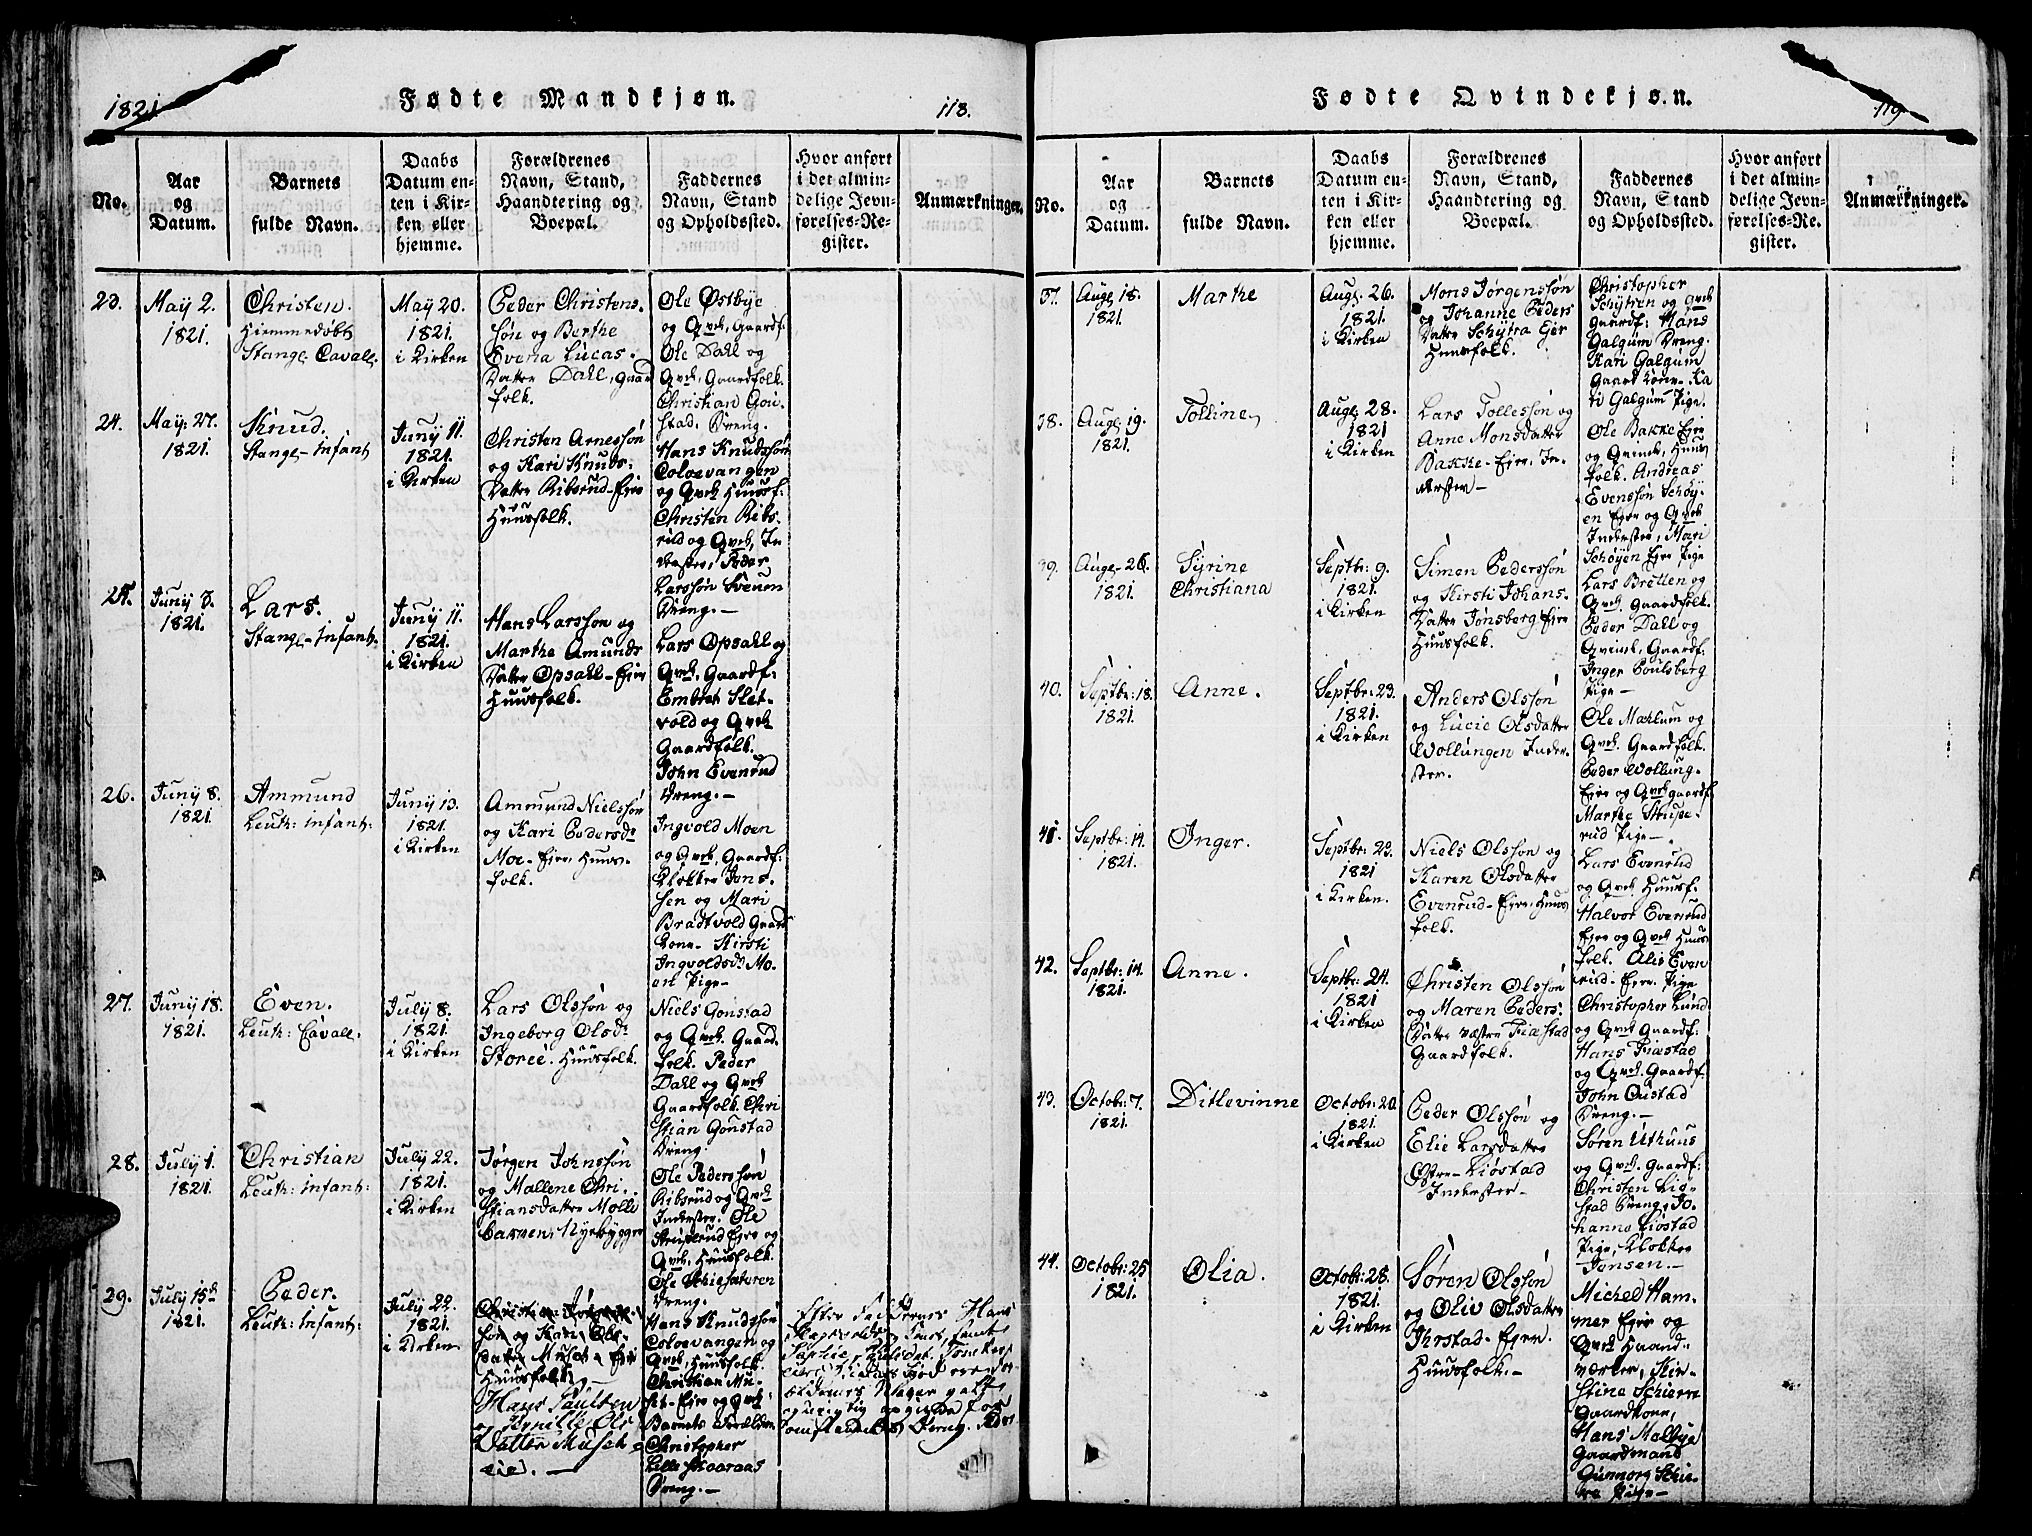 1821.
Fødte Mandkjøn.
118.
No.
Aar
og
Datum.
Barnets
fulde Navn.
Daabs
Datum en-
ten i Kir-
ken eller
hjemme.
Forældrenes
Navn, Stand,
Haandtering og
Boepæl.
Faddernes
Navn, Stand
og Opholdssted.
Hvor anført
i det almin-
delige Jevn-
førelses-Re-
gister.
Anmærkninger.
23.
May 2.
1821.
Christen.
Hiemmedøbt
Stange Cavall.
May 20.
1821.
i Kirken
Peder Christens
søn og Berthe
Evena Lucas
Datter Dahl, Gaard
folk.
Ole Østbye
og Qvde, Gaardf:
Ole Dahl og
Qvde, Gaardfolk.
Christian Gon-
stad, Dreng.
24.
May: 27.
1821.
Knud.
Stange Infant
Juny 11.
1821.
i Kirken
Christen Arnessøn
og Kari Knuds-
Datter Ribsrud-Eye
Huusfolk.
Hans Knudssøn
Coloevangen
og Qvde Huusf:
Christen Ribs-
rud og Qvde, In
derster, Peder
Larssøn Sveum
Dreng.
25.
Juny 8.
1821.
Lars.
Stange-Infant:
Juny 11.
1821.
i Kirken
Hans Larssøn og
Marthe Amunds
Datter Opsahl-Eye
Huusfolk.
Lars Opsahl og
Qvde, Gaardf:
Embret Slet-
vold og Qvde
Gaardfolk.
John Evenrud
Dreng.
26.
Juny 8.
1821
Ammund
Leuth: Infant:
Juny 13.
1821.
i Kirken
Ammund Nielssøn
og Kari Pedersdr
Moe-Eye, Huus-
folk.
Ingvold Moen
og Qvde, Gaardf:
Klokker Jons-
sen og Mari
Bradtvold Gaard
kone - Kirsti
Ingvoldsdr Mo-
en Pige
27.
Juny 18.
1821.
Even.
Leuth: Cavall.
July 8.
1821.
i Kirken
Lars Olssøn og
Ingeborg Olsdr
Storeie. Huusfolk.
Niels Gonstad
og Qvde. Gaard
folk. Peder
Dahl og Qvde
Gaardfolk. Chri
stian Gonstad
Dreng.
28.
July 1.
1821.
Christian
Leuth: Infant:
July 22.
1821.
i Kirken
Jørgen Johnssøn
og Mallene Chri-
stiansdatter Molle
bakken, Nyebygger
Ole Pederssøn
Ribsrud og Qvde
Inderster. Ole
Struperud Eye og
Qvde, Huusfolk.
Ole Schiesæteren
Dreng.
29.
July 15de
1821.
Peder.
Leuth: Infant:
July 22.
1821.
i Kirken
søn og Kari Ols-
datter Muset Eye
Huusfolk.
Hans Paulsen
og Pernille Ols
Datter Muset-
eie.
Hans Knudssøn
Coloevangen og
Qvde, Huusfolk.
Christian Mu-
set-Eye og Qvde
Barnets Forældre
Christopher
Lille Skaaraas
Dreng.
Efter Faddernes
119
Fødte Qvindekjøn.
No.
Aar
og
Datum.
Barnets
fulde Navn.
Daabs
Datum en-
ten i Kir-
ken eller
hjemme.
Forældrenes
Navn, Stand,
Haandtering og
Boepæl.
Faddernes
Navn, Stand
og Opholdssted.
Hvor anført
i det almin-
delige Jevn-
førelses-Re-
gister.
Anmærkninger.
37.
Aug: 18.
1821.
Marthe
Aug: 26.
1821.
i Kirken
Mons Jørgenssøn
og Johanne Peders
Datter Schytra Eye
Huusfolk.
Christopher
Schytren og Qvde
Gaardf: Hans
Galgum Dreng.
Kari Galgum
Gaardkone. Ka
ri Galgum Pige.
38.
Aug: 19.
1821.
Tolline
Aug: 28.
1821
i Kirken
Lars Tollessøn og
Anne Monsdatter
Bakke-Eye, In-
derster
Ole Bakke Eye
og Qvinde, Huus
folk. Andreas
Evenssøn Schøy-
en Eye og Qvde
Inderster, Mari
Schøyen Eye Pige
39.
Aug: 26.
1821.
Syrine
Christiana
Septbr: 9.
1821.
i Kirken
Simen Pederssøn
og Kirsti Johans-
Datter Jønsberg Eye
Huusfolk.
Lars Bretten og
Qvde. Gaardfolk.
Peder Dahl og
Qvinde, Gaardf:
Inger Poulsberg
Pige
40.
Septbr: 18.
1821.
Anne.
Septbr: 23.
1821.
i Kirken
Anders Olssøn
og Lucie Olsdatter
Wollungen Inder-
ster.
Ole Mælum og
Qvde. Gaardfolk.
Peder Wollung-
Eye og Qvde gaardf:
Marthe Strupe-
rud Pige
41.
Septbr: 14.
1821.
Inger.
Septbr: 23.
1821
i Kirken.
Niels Olssøn og
Karen Olsdatter
Evenrud-Eye, Huus
folk.
Lars Evenrud
og Qvde Huusf:
Halvor Evenrud
Eye og Qvde Huus
folk. Alis Even
rud-Eye. Pige
42.
Septbr: 14.
1821.
Anne.
Septbr: 24.
1821
i Kirken
Christen Olssøn
og Maren Peders-
Datter væstre Fiæstad
Gaardfolk.
Christopher Lund
og Qvde Gaardf:
Hans Fiæstad
og Qvde. Gaardf.
John Oustad
Dreng.
43.
Octobr: 7.
1821.
Ditlevinne
Octobr: 20.
1821.
i Kirken
Peder Olssøn og
Elie Larsdatter
Østre-Liøstad
Inderster
Søren Uthuus
og Qvde. Gaardf:
Christen Liø-
stad Dreng, Jo-
hanne Liøstad
Pige, Klokker
Jonsen.
44.
Octobr: 25
1821.
Olia.
Octobr: 28.
1821.
i Kirken
Søren Olssøn
og Oliv Olsdatter
Thrstad-Eyer.
Huusfolk.
Michel Ham-
mer Eye og
Qvde Haand-
værker, Kir-
stine Schierre
Gaardkone,
Hans Malbye
Gaardmand
Gunnorg Schie-
re Pige